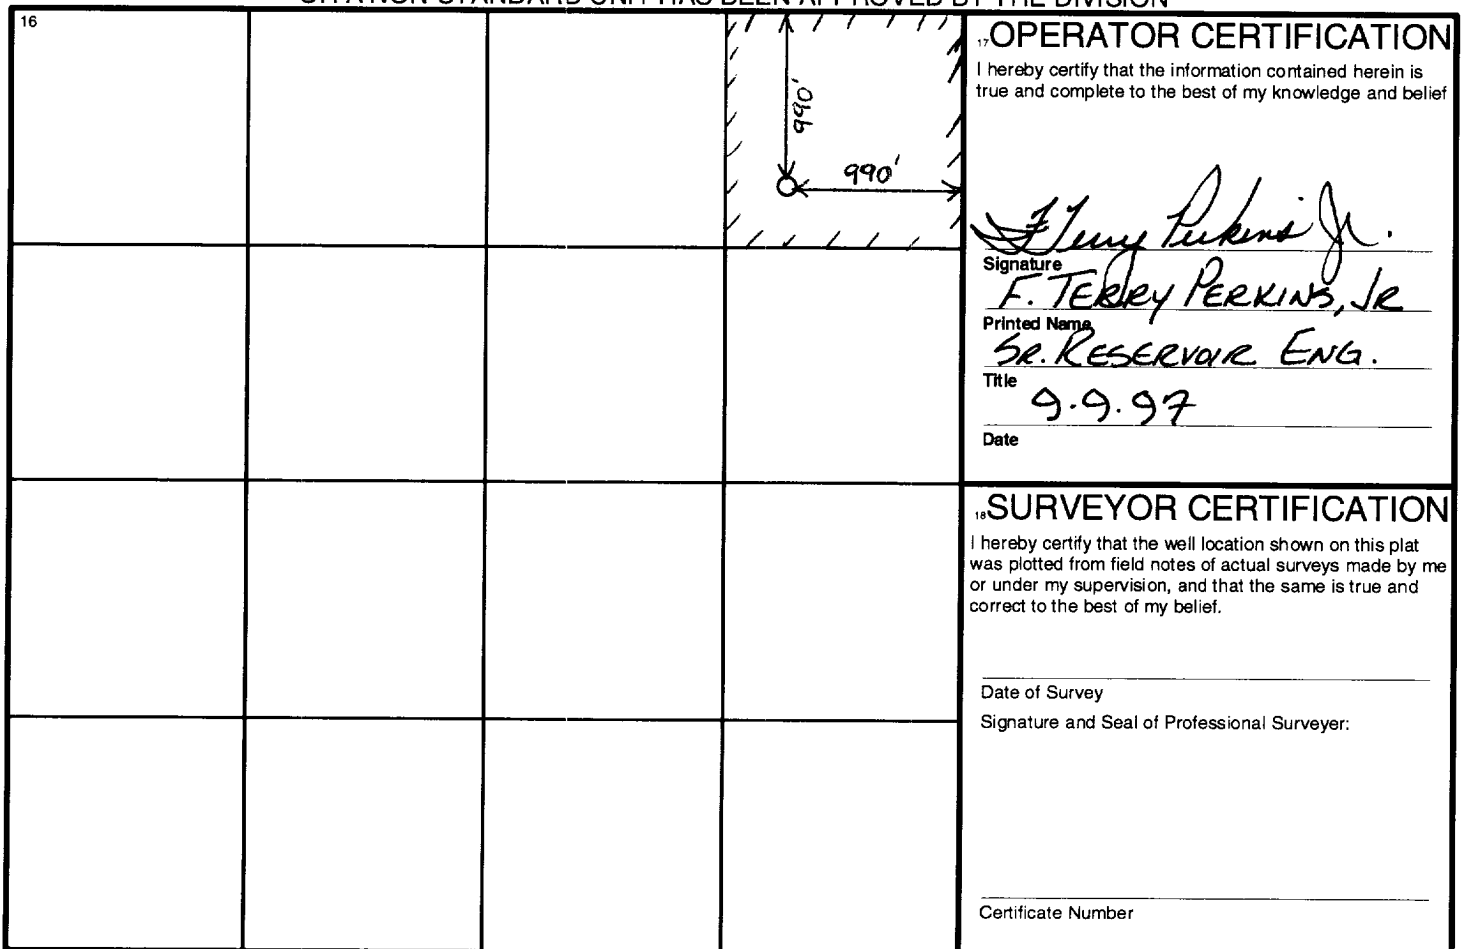 OR A NON-STANDARD UNIT HAS BEEN APPROVED BY THE DIVISION
16
990'
990'
17 OPERATOR CERTIFICATION
I hereby certify that the information contained herein is
true and complete to the best of my knowledge and belief
F Terry Perkins Jr.
Signature
F. TERRY PERKINS, JR
Printed Name
SR. RESERVOIR ENG.
Title
9.9.97
Date
18 SURVEYOR CERTIFICATION
I hereby certify that the well location shown on this plat
was plotted from field notes of actual surveys made by me
or under my supervision, and that the same is true and
correct to the best of my belief.
Date of Survey
Signature and Seal of Professional Surveyer:
Certificate Number